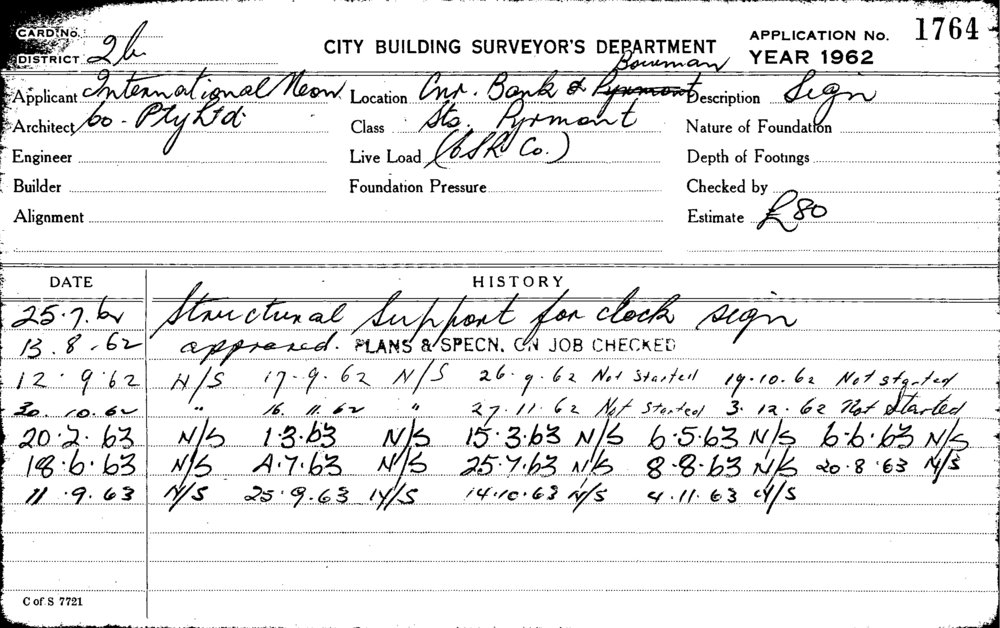 CARD No. 1764
DISTRICT 2b CITY BUILDING SURVEYOR'S DEPARTMENT APPLICATION No.
YEAR 1962
Bowman
Applicant International Neon Location Cnr. Bank & Pyrmont Description Sign
Architect Co. Pty Ltd. Class Sts. Pyrmont Nature of Foundation
Engineer Live Load (CSR Co.) Depth of Footings
Builder Foundation Pressure Checked by
Alignment Estimate £80
DATE HISTORY
25.7.62 Structural Support for clock sign
13.8.62 approved. PLANS & SPECN. ON JOB CHECKED
12.9.62 N/S 17-9.62 N/S 26.9.62 Not Started 19.10.62 Not started
30.10.62 " 16.11.62 " 27.11.62 Not Started 3.12.62 Not Started
20.2.63 N/S 1.3.63 N/S 15.3.63 N/S 6.5.63 N/S 6.6.63 N/S
18.6.63 N/S 4.7.63 N/S 25.7.63 N/S 8.8.63 N/S 20.8.63 N/S
11.9.63 N/S 25.9.63 N/S 14.10.63 N/S 4.11.63 N/S
C of S 7721